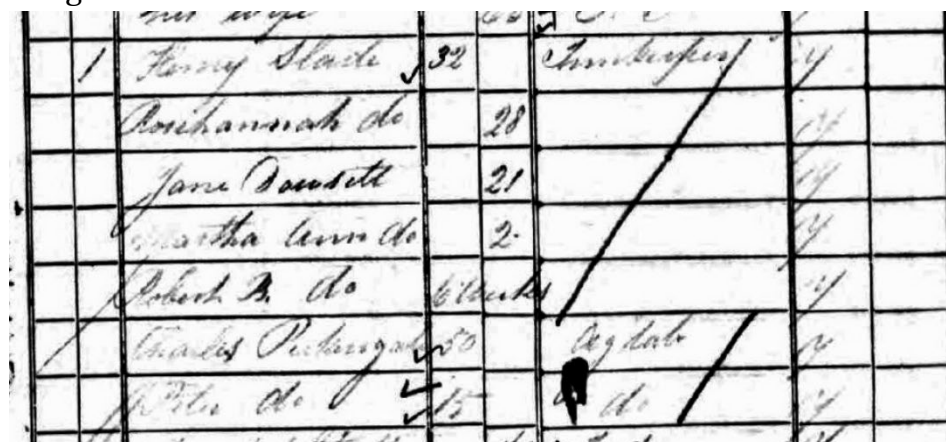 his wife
1 Henry Slade 32 Innkeeper y
Rosehannah do 28 y
Jane Dowsett 21 y
Martha Ann do 2 y
Robert B. do 6 Weeks y
Charles 50 Ag Lab y
Peter do 15 do y